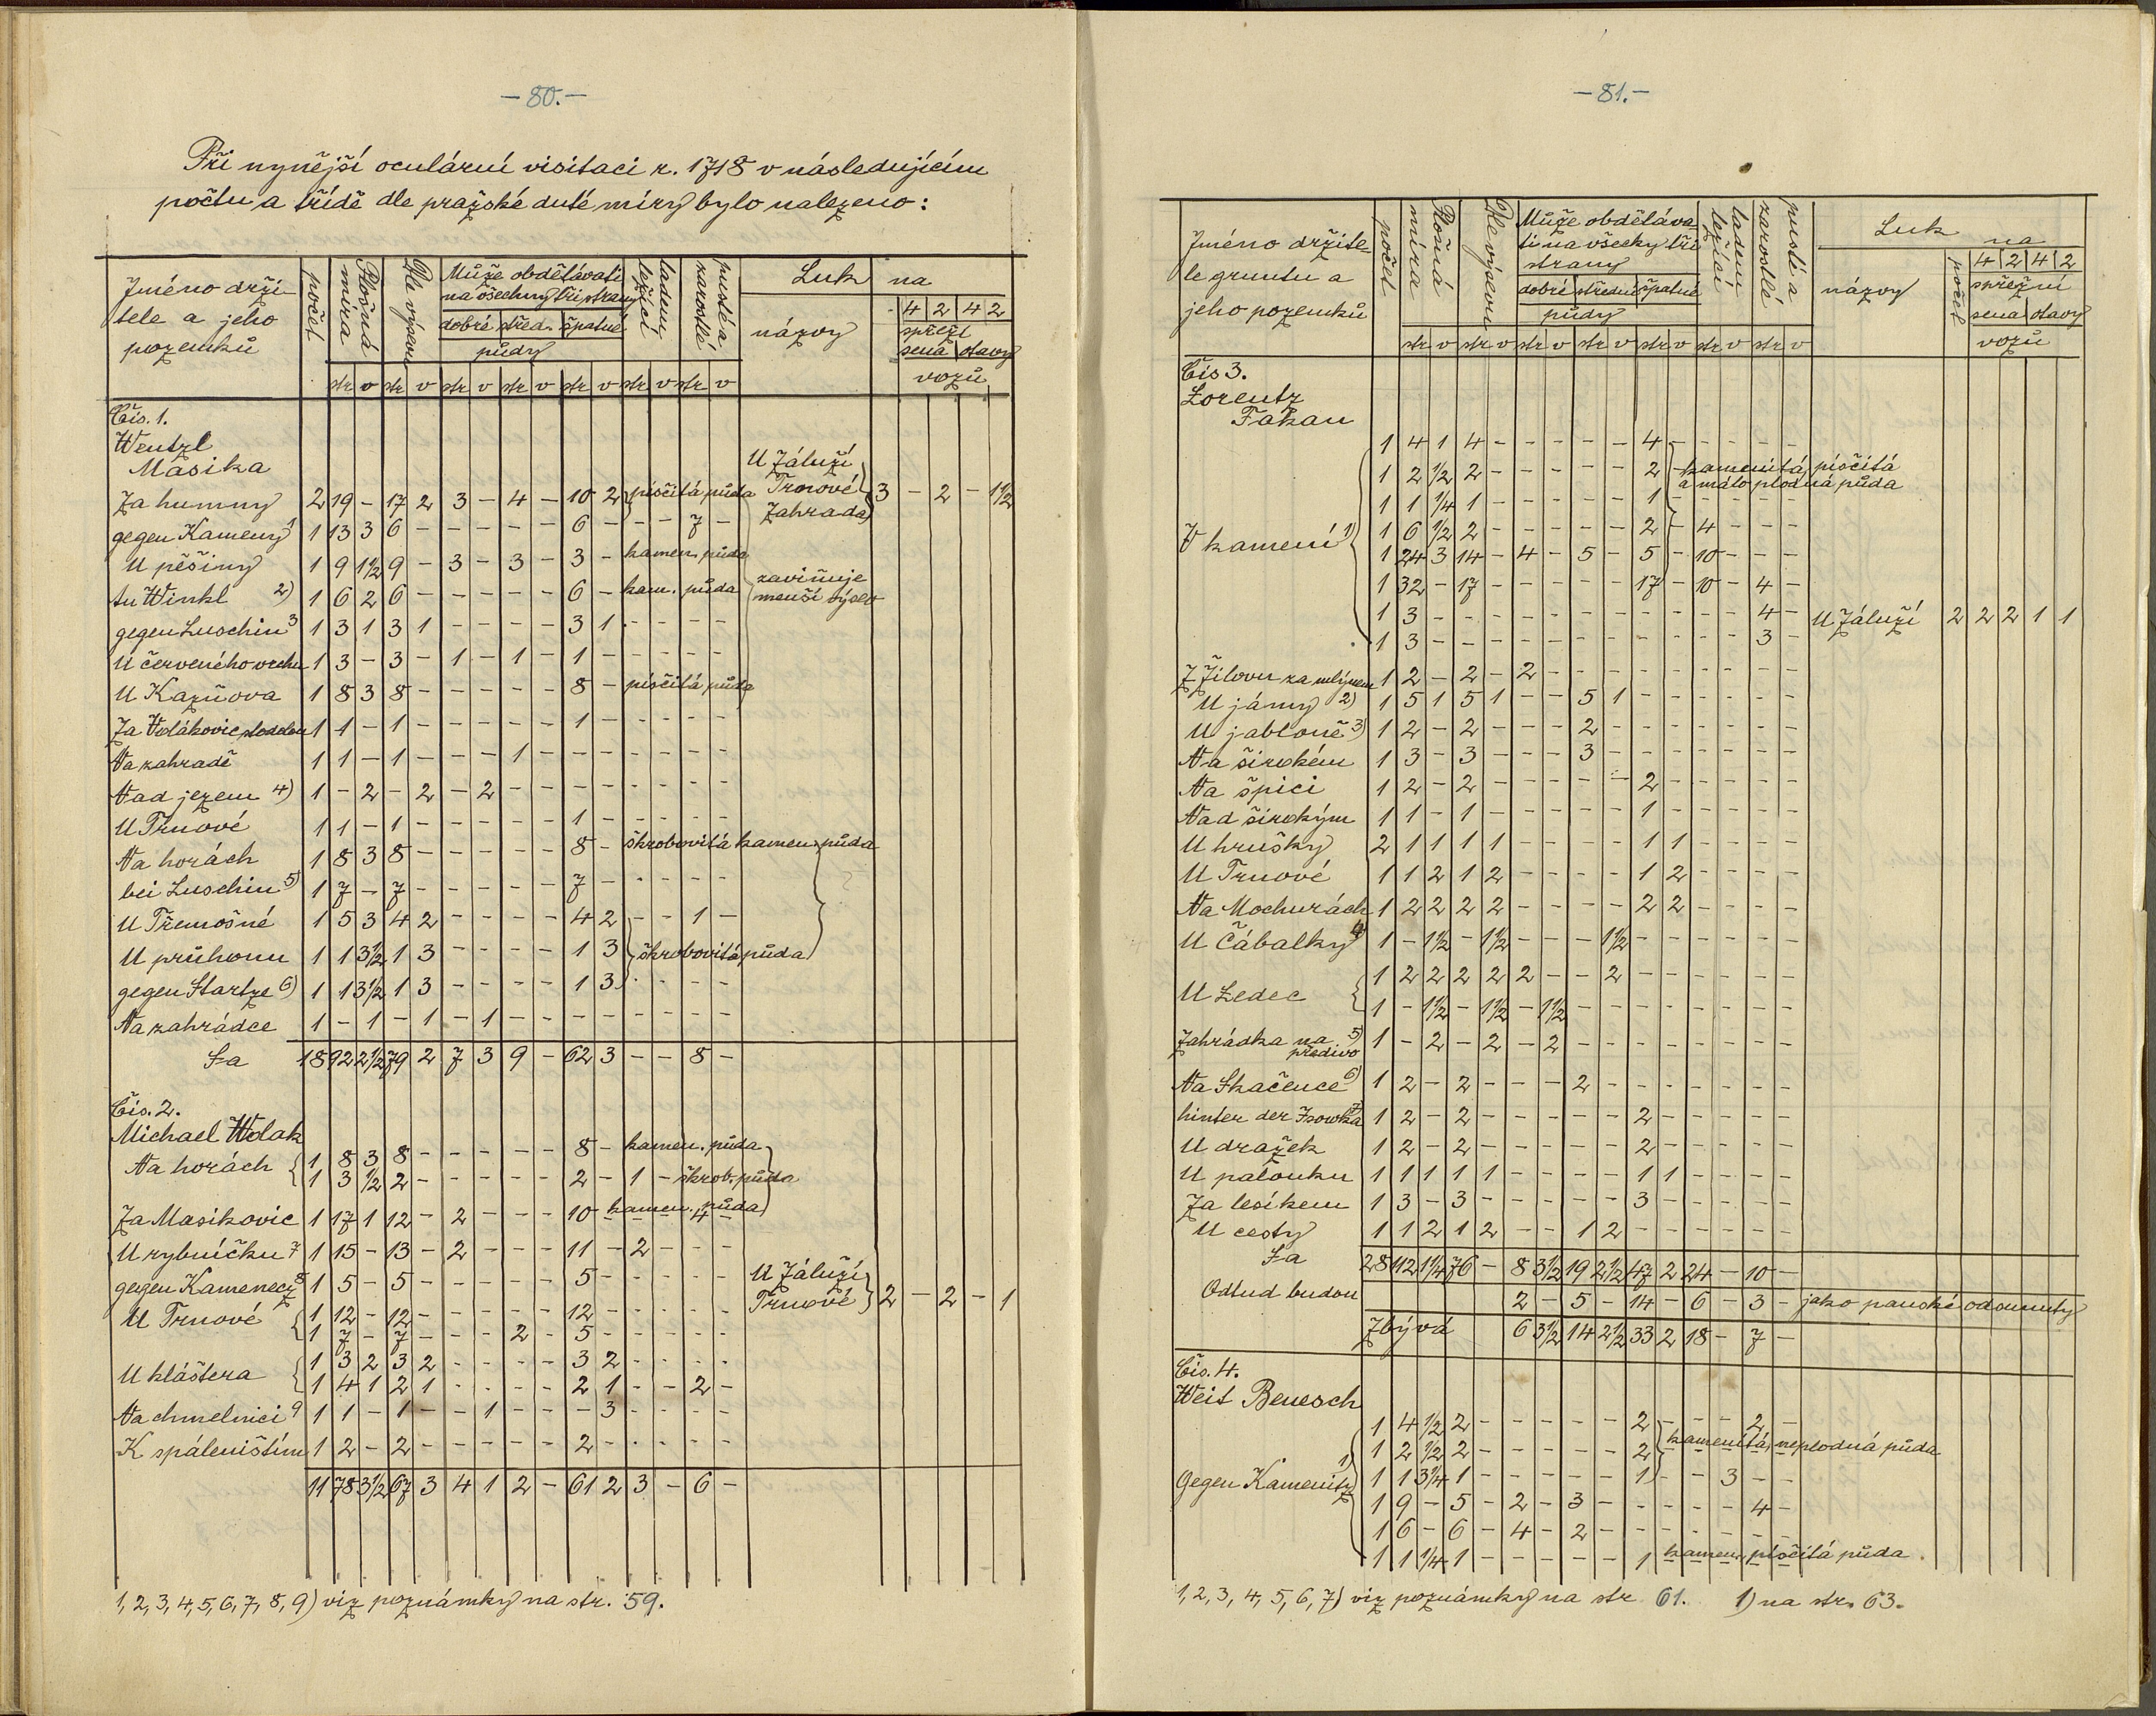 — 80. —
Při nynější oculární visitaci r. 1718 v následujícím
počtu a třídě dle pražské duté míry bylo nalezeno:
Jméno drži-
tele a jeho
pozemků
počet
Plošná
míra
Dle výsevu
Může obdělávati
na všechny tři strany
dobré střed. špatné
půdy
ladem
ležící
pusté a
zarostlé
Luk na
názvy
4 2 4 2
spřež.
sena otavy
vozů
str v str v str v str v str v str v str v
Čís. 1.
Wentzl
Masika
Za humny 2 19 - 17 2 3 - 4 - 10 2 písčitá půda U Záluží Trnové Zahrada 3 - 2 - 1 1/2
gegen Kameny 1 1 13 3 6 - - - - - 6 - - - 7 -
U pěšiny 1 9 1 1/2 9 - 3 - 3 - 3 - kamen. půda
tu Winkl 2) 1 6 2 6 - - - - - 6 - kam. půda zaviňuje menší výsev
gegen Luschin 3 1 3 1 3 1 - - - - 3 1 - - - -
U červeného vrchu 1 3 - 3 - 1 - 1 - 1 - - - - -
U Kazňova 1 8 3 8 - - - - - 8 - písčitá půda
Za Wolákovic stodolou 1 1 - 1 - - - - - 1 - - - - -
Na zahradě 1 1 - 1 - - - 1 - - - - - - -
Nad jezem 4) 1 - 2 - 2 - 2 - - - - - - - -
U Trnové 1 1 - 1 - - - - - 1 - - - - -
Na horách 1 8 3 8 - - - - - 8 - škrobovitá kamen. půda
bei Luschin 5) 1 7 - 7 - - - - - 7 - - - - -
U Třemošné 1 5 3 4 2 - - - - 4 2 - - 1 -
U průhonu 1 1 3 1/2 1 3 - - - - 1 3 škrobovitá půda
gegen Startze 6) 1 1 3 1/2 1 3 - - - - 1 3 - - - -
Na zahrádce 1 - 1 - 1 - 1 - - - - - - - -
Sa 18 92 2 1/2 79 2 7 3 9 - 62 3 - - 8 -
Čís. 2.
Michael Wolak
Na horách 1 8 3 8 - - - - - 8 - kamen. půda
1 3 1/2 2 - - - - - 2 - 1 - škrob. půda
Za Masikovic 1 17 1 12 - 2 - - - 10 - kamen. půda 4 -
U rybníčku 7 1 15 - 13 - 2 - - - 11 - 2 - - -
gegen Kamenecz 8 1 5 - 5 - - - - - 5 - - - - - U Záluží
U Trnové 1 12 - 12 - - - - - 12 - - - - - Trnové 2 - 2 - 1
1 7 - 7 - - - 2 - 5 - - - - -
U kláštera 1 3 2 3 2 - - - - 3 2 - - - -
1 4 1 2 1 - - - - 2 1 - - 2 -
Na chmelnici 9 1 1 - 1 - - 1 - - - 3 - - - -
K spáleništím 1 2 - 2 - - - - - 2 - - - - -
11 78 3 1/2 67 3 4 1 2 - 61 2 3 - 6 -
1, 2, 3, 4, 5, 6, 7, 8, 9) viz poznámky na str. 59.
— 81. —
Jméno držite-
le gruntu a
jeho pozemků
počet
Plošná
míra
Dle výsevu
Může obděláva-
ti na všecky tři
strany
dobré střední špatné
půdy
ladem
ležící
pusté a
zarostlé
Luk na
názvy
počet
4 2 4 2
spřežní
sena otavy
vozů
str v str v str v str v str v str v str v
Čís 3.
Lorentz
Fakan
1 4 1 4 - - - - - 4 - - - - -
1 2 1/2 2 - - - - - 2 - kamenitá, písčitá
a málo plodná půda
1 1 1/4 1 - - - - - 1
V kamení 1) 1 6 1/2 2 - - - - - 2 - 4 - - -
1 24 3 14 - 4 - 5 - 5 - 10 - - -
1 32 - 17 - - - - - 17 - 10 - 4 -
1 3 - - - - - - - - - - - 4 - U Záluží 2 2 2 1 1
1 3 - - - - - - - - - - - 3 -
Z Žilova za mlýnem 1 2 - 2 - 2 - - - - - - - - -
U jámy 2) 1 5 1 5 1 - - 5 1 - - - - - -
U jabloně 3) 1 2 - 2 - - - 2 - - - - - - -
Na širokém 1 3 - 3 - - - 3 - - - - - - -
Na špici 1 2 - 2 - - - - - 2 - - - - -
Nad širokým 1 1 - 1 - - - - - 1 - - - - -
U hrušky 2 1 1 1 1 - - - - 1 1 - - - -
U Trnové 1 1 2 1 2 - - - - 1 2 - - - -
Na Mochurách 1 2 2 2 2 - - - - 2 2 - - - -
U Čábalky 4 1 - 1 1/2 - 1 1/2 - - - 1 1/2 - - - - - -
U Ledec 1 2 2 2 2 2 - - 2 - - - - - -
1 - 1 1/2 - 1 1/2 - 1 1/2 - - - - - - - -
Zahrádka na 5) 1 - 2 - 2 - 2 - - - - - - - -
předivo
Na Skačence 6) 1 2 - 2 - - - 2 - - - - - - -
hinter der Isowka 7 1 2 - 2 - - - - - 2 - - - - -
U dražek 1 2 - 2 - - - - - 2 - - - - -
U palouku 1 1 1 1 1 - - - - 1 1 - - - -
Za lesíkem 1 3 - 3 - - - - - 3 - - - - -
U cesty 1 1 2 1 2 - - 1 2 - - - - - -
Sa 28 112 1 1/4 76 - 8 3 1/2 19 2 1/2 47 2 24 - 10 -
Odtud budou 2 - 5 - 14 - 6 - 3 - jako panské odejmuty
Zbývá 6 3 1/2 14 2 1/2 33 2 18 - 7 -
Čís. 4.
Weit Benesch
1 4 1/2 2 - - - - - 2 - - - 2 -
1 2 1/2 2 - - - - - 2 kamenitá, neplodná půda
Gegen Kamenitz 1) 1 1 3/4 1 - - - - - 1 - - 3 - -
1 9 - 5 - 2 - 3 - - - - - 4 -
1 6 - 6 - 4 - 2 - - - - - - -
1 1 1/4 1 - - - - - 1 kamen. písčitá půda
1, 2, 3, 4, 5, 6, 7) viz poznámky na str 61. 1) na str. 63.